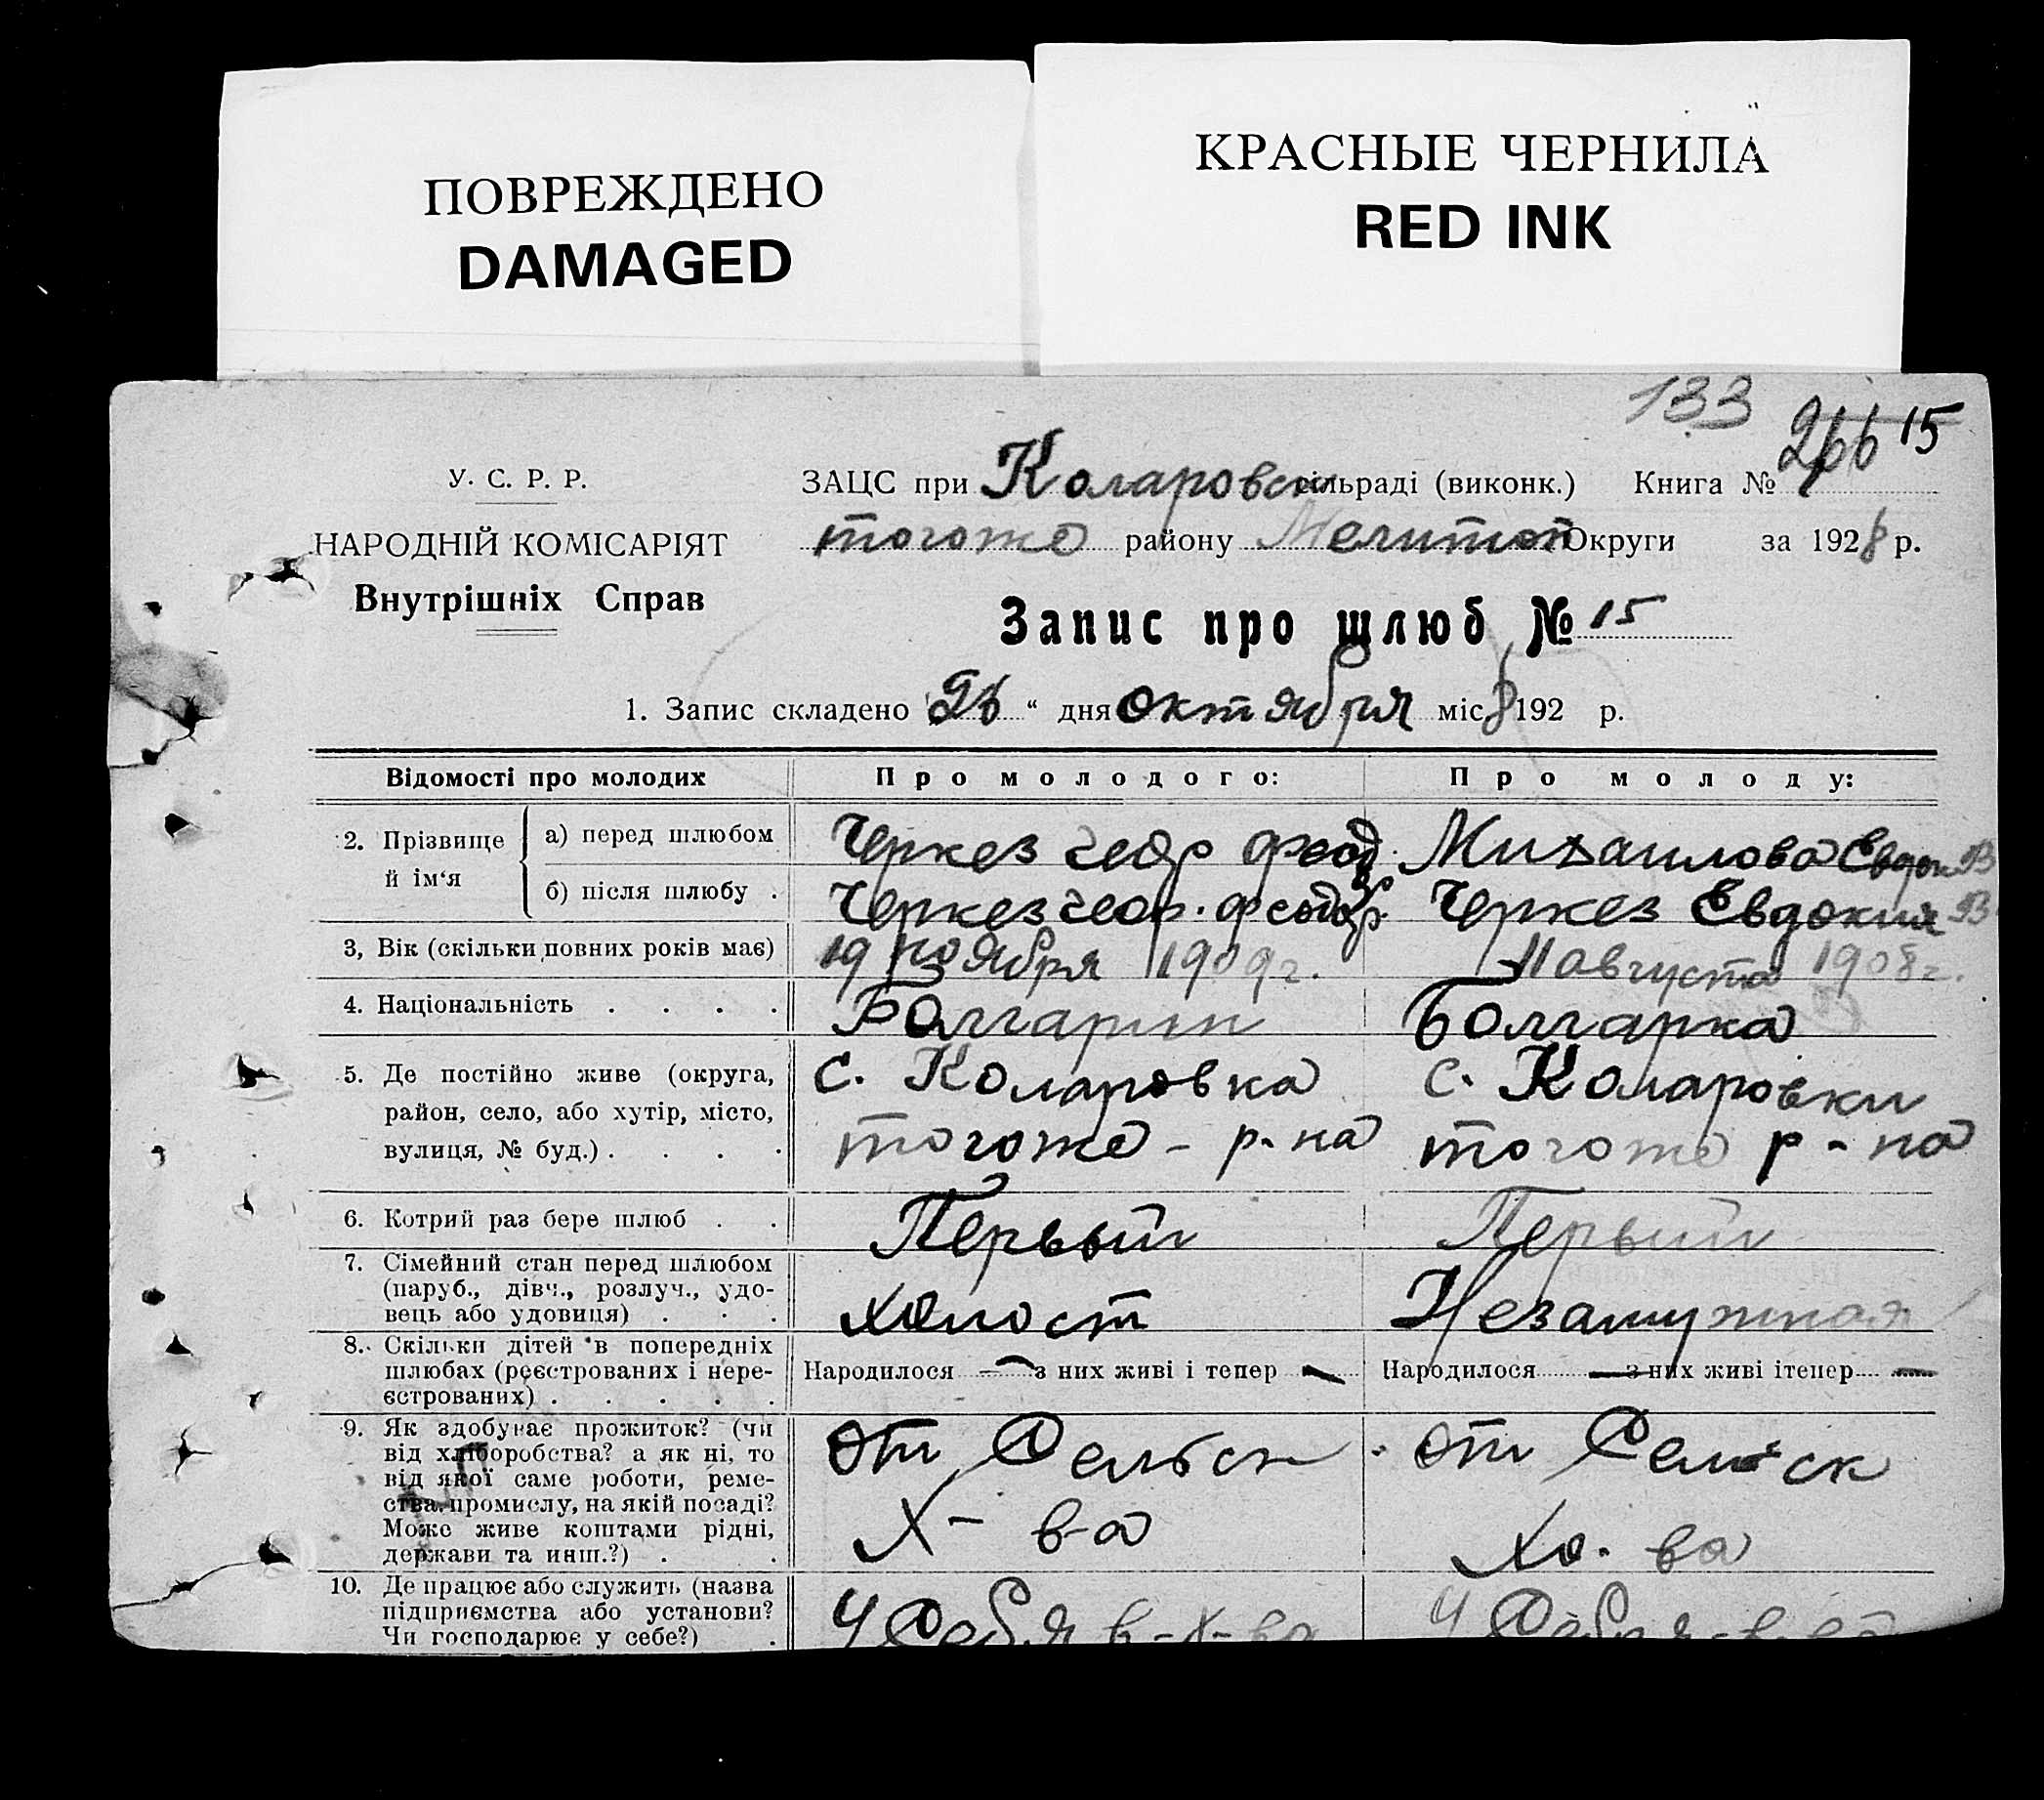 ПОВРЕЖДЕНО
DAMAGED
КРАСНЫЕ ЧЕРНИЛА
RED INK
133
266 15
У. С. Р. Р.
НАРОДНІЙ КОМІСАРІЯТ
Внутрішніх Справ
ЗАЦС при Коларовск сільраді (виконк.) Книга №
тогоже району Мелитоп Округи за 1928 р.
Запис про шлюб № 15
1. Запис складено " " дня октября міс 8 192 р.
Відомості про молодих Про молодого: Про молоду:
2. Прізвище й ім'я
а) перед шлюбом Черкез Феод. Михаилова Евдок В
б) після шлюбу . Черкез Феодор. Черкез Евдокия В
3, Вік (скільки повних років має) 19 ноября 1909 г. 11 августа 1908 г.
4. Національність . . . . Болгарин Болгарка
5. Де постійно живе (округа,
район, село, або хутір, місто,
вулиця, № буд.) . . . .
с. Коларовка
тогоже - р-на
с. Коларовки
тогоже р-на
6. Котрий раз бере шлюб . . Первый Первый
7. Сімейний стан перед шлюбом
(паруб., дівч., розлуч., удо-
вець або удовиця) . . .
холост Незамужная
8. Скільки дітей в попередніх
шлюбах (реєстрованих і нере-
єстрованих) . . . . .
Народилося — з них живі і тепер — Народилося — з них живі ітепер —
9. Як здобуває прожиток? (чи
від хліборобства? а як ні, то
від якої саме роботи, реме-
ства, промислу, на якій посаді?
Може живе коштами рідні,
держави та инш.?) . .
от Сельск
Х- в-а
от Сельск
Хо. ва
10. Де працює або служить (назва
підприємства або установи?
Чи господарює у себе?) .
У Себя в-Х-ва У Себя